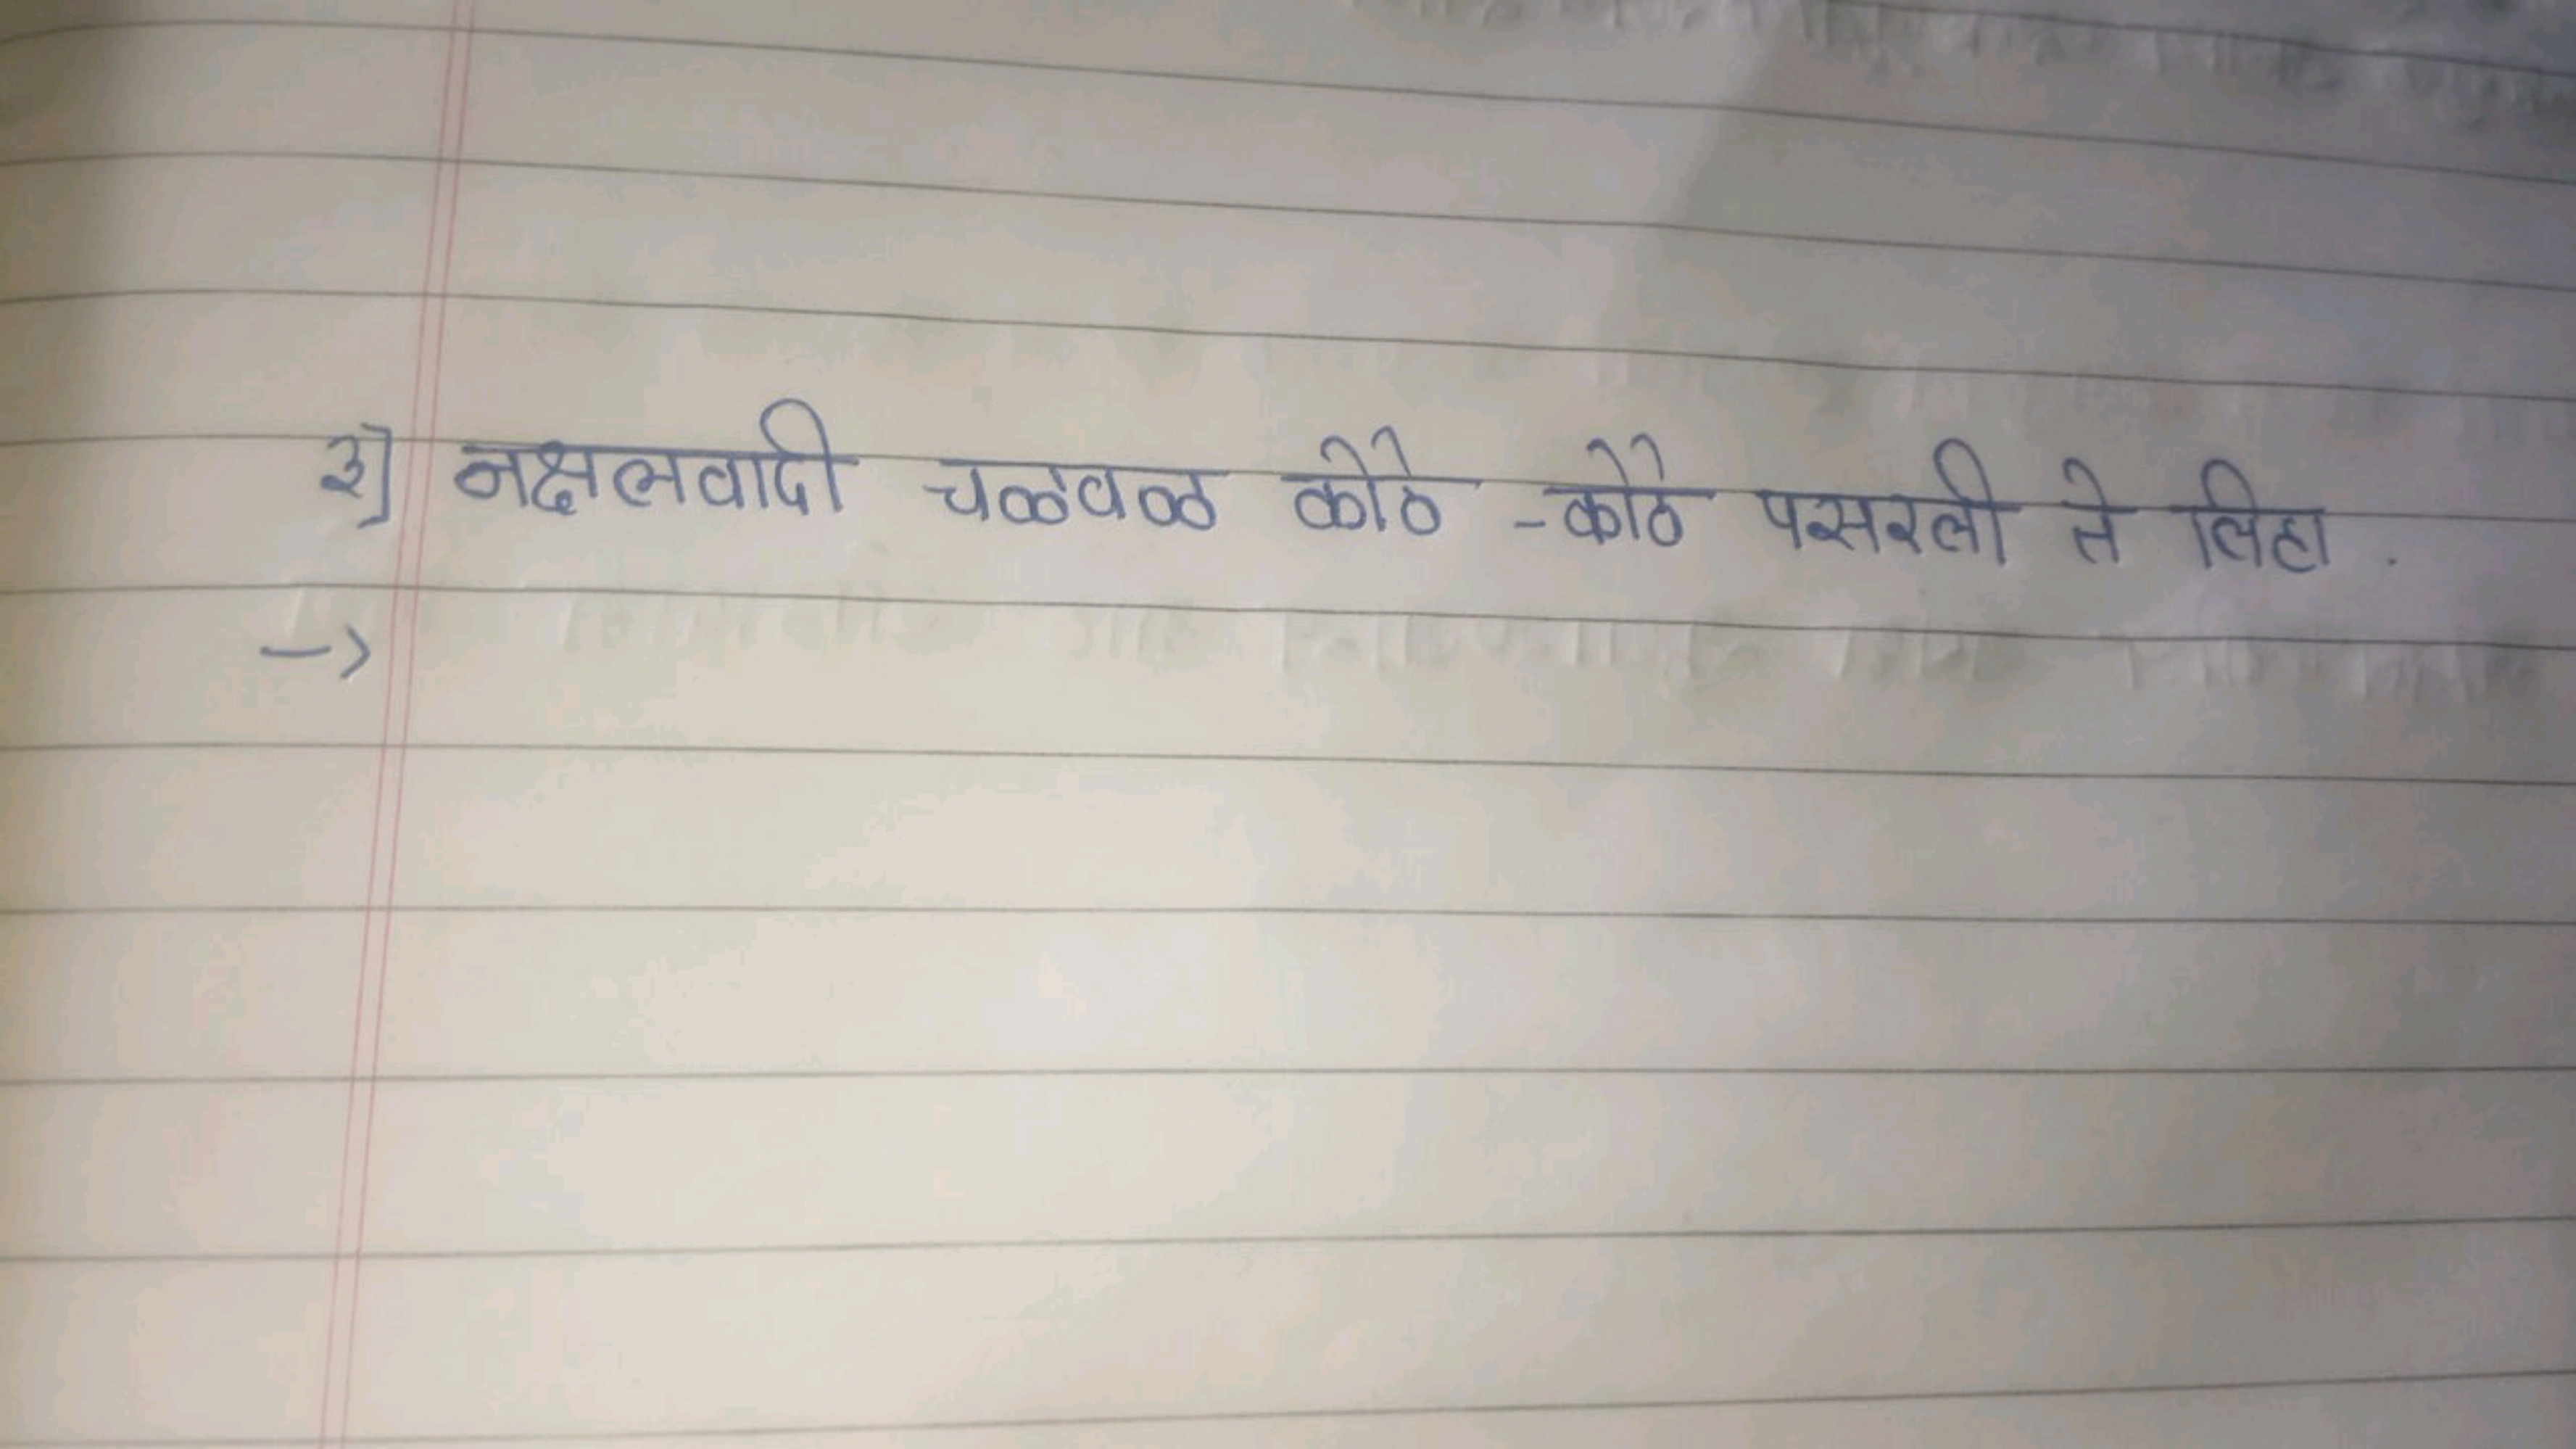 ३] नक्षलवादी चळवळ कोठे - कोठे पसरली ते लिहा .
→